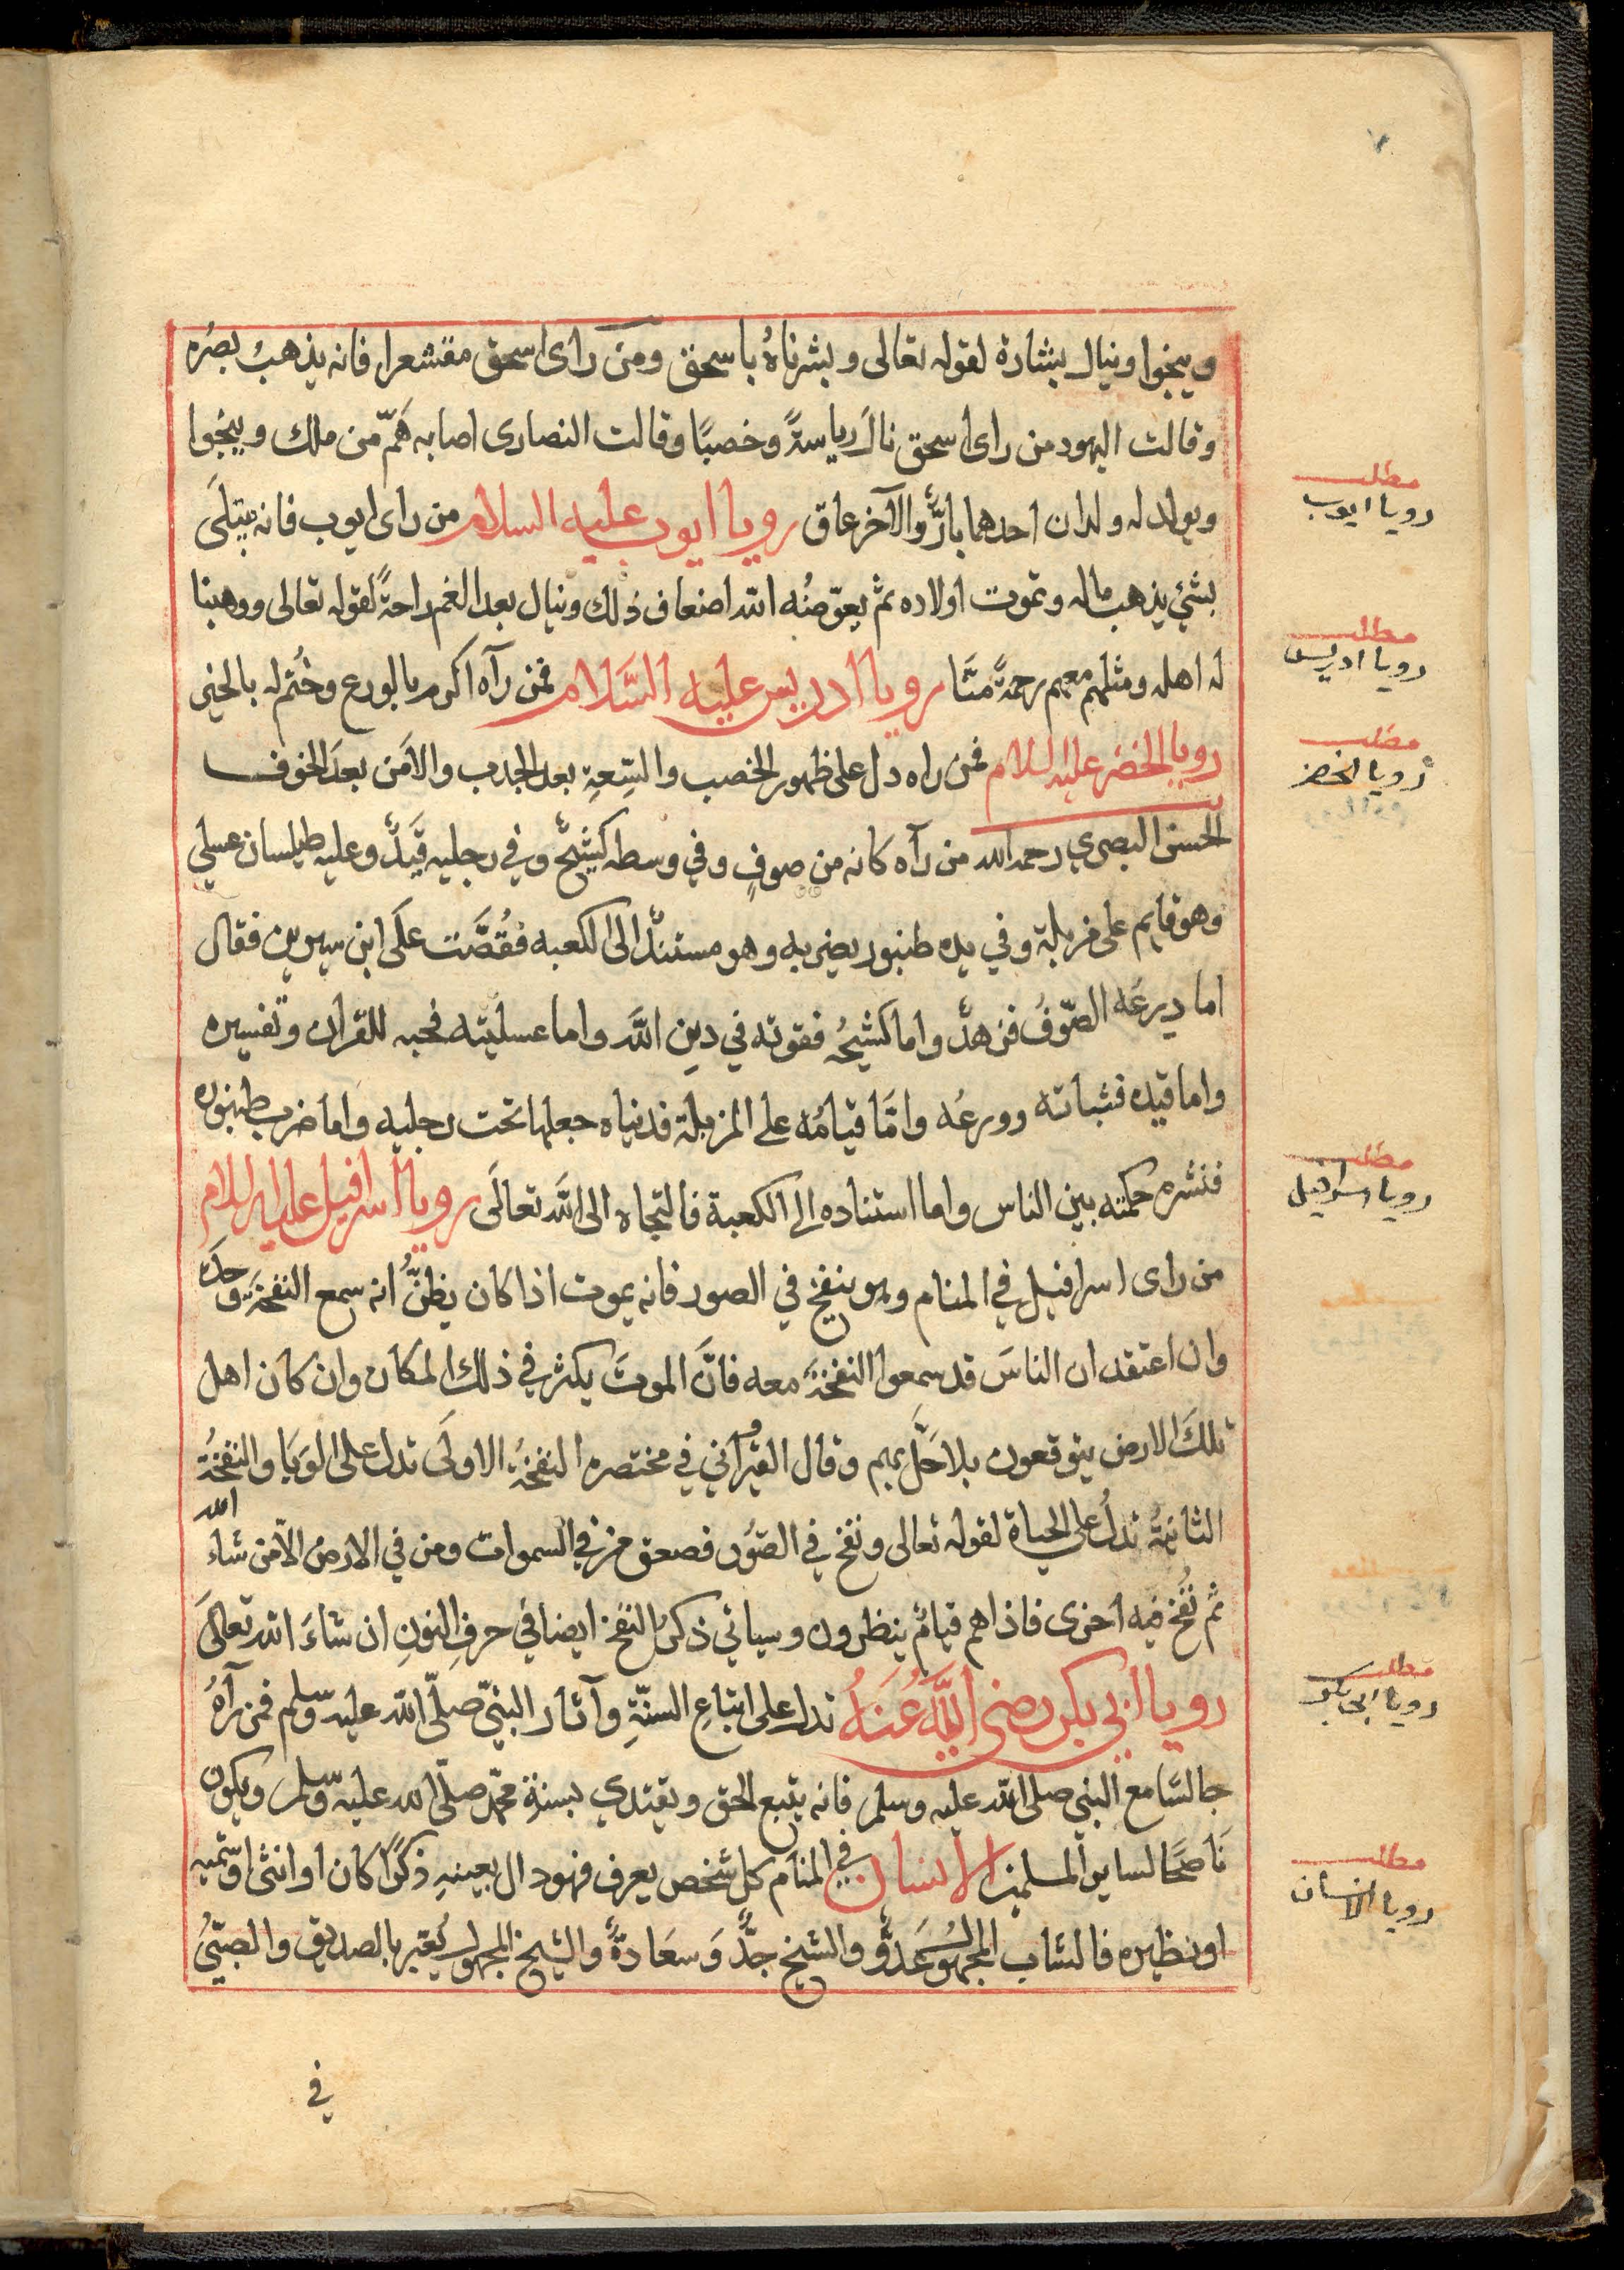 وينجوا وينال بشارة لقوله تعالى وبشرناهُ باسحق ومن راى اسحق مقشعرا فانه يذهبُ بصرُه
وقالت اليهود من راى اسحق نالَ رياسةً وخصبًا وقالت النصارى اصابه هَمّ من ملك وينجوا
ويولد له ولدان احدهما بارٌّ والآخر عاق رويا ايوب عليه السلام من راى ايوب فانه يبتلَى
بشئ يذهب ماله وتموت اولاده ثم يعوّضُه الله اضعاف ذلك وينال بعد الغم راحةً لقوله تعالى ووهبنا
له اهله ومثلهم معهم رحمةً منّا رويا ادريس عليه السَّلام فمن رآه اكرم بالورع وخُتم له بالخير
رويا الخضر عليه السلام فمن راه دل على ظهور الخصب والسِّعةِ بعد الجدب والامَن بعدَ الخوف
الحسن البصري رحمه الله من رآه كانه من صوفٍ وفي وسطه كشيحٌ وفي رجليه قَيدٌ وعليه طيلسان عسلي
وهو قايم على مزبلة وفي يده طنبور يضربه وهو مستندٌ الى الكعبه فقُصَّت علَى ابن سيرين فقال
اما درعُه الصّوفُ فزهدٌ واما كشيحُه فقوته في دينِ اللهَ واما عسليته فحبه للقران وتفسيره
واما قيده فثباته وورعُه وامَّا قيامُه على المزبلة فدنياه جعلها تحت رجليه واما ضرب طنبوره
فنشره حكمته بين الناس واما استناده الى الكعبة فالتجاه الى اللهَ تعالَى رويا اسرافيل عليه السلام
من راى اسرافيل في المنام وهو ينفخ في الصور فانه يموت اذا كان يظنُّ انه سمع النفخَة وحدَه
وان اعتقد ان الناسَ قد سمعوا النفخَة معه فانَّ الموتَ يكثر في ذلك المكان وان كان اهل
تلكَ الارض يتوقعون بلا حَلَّ بهم وقال القيرُاني في مختصره النفخةُ الاولَى تدل على الوَبا والنفخةُ
الثانيةُ تدلُ على الحياة لقوله تعالى ونفخ في الصّوُر فصعق من في السموات ومن في الارض الّا من شاء الله
ثم نُفخ فيه اخرى فاذا هم قيامٌ ينظرون وسياتي ذكرُ النفخ ايضا في حرفِ النونِ ان شاءَ الله تعالَى
رويا ابي بكر رضي اللهُ عَنهُ تدل على اتباعِ السنّةِ وآثار النبيّ صلّى الله عليه وسلّم فمن رآهُ
جالسًا مع النبي صلى الله عليه وسلم فانه يتبع الحق ويقتدي بسنة محمّد صلّى الله عليه وسلّم ويكون
نَاصحًا لساير المسلمين الانسان في المنام كل شخص يعرف فهو دال بعينهِ ذكرًا كان او انثى او سّميه
او نظيره فالشاب المجهولُ عَدوٌّ والشيخ جدٌّ وَسعَادةٌ والشيخ المجهول يُعبّر بالصديق والصبيُّ
في
مطلب
رويا ايوب
مطلب
رويا ادريس
مطلب
رويا الخضر
مطلب
رويا اسرافيل
مطلب
رويا ابي بكر
مطلب
رويا الانسان